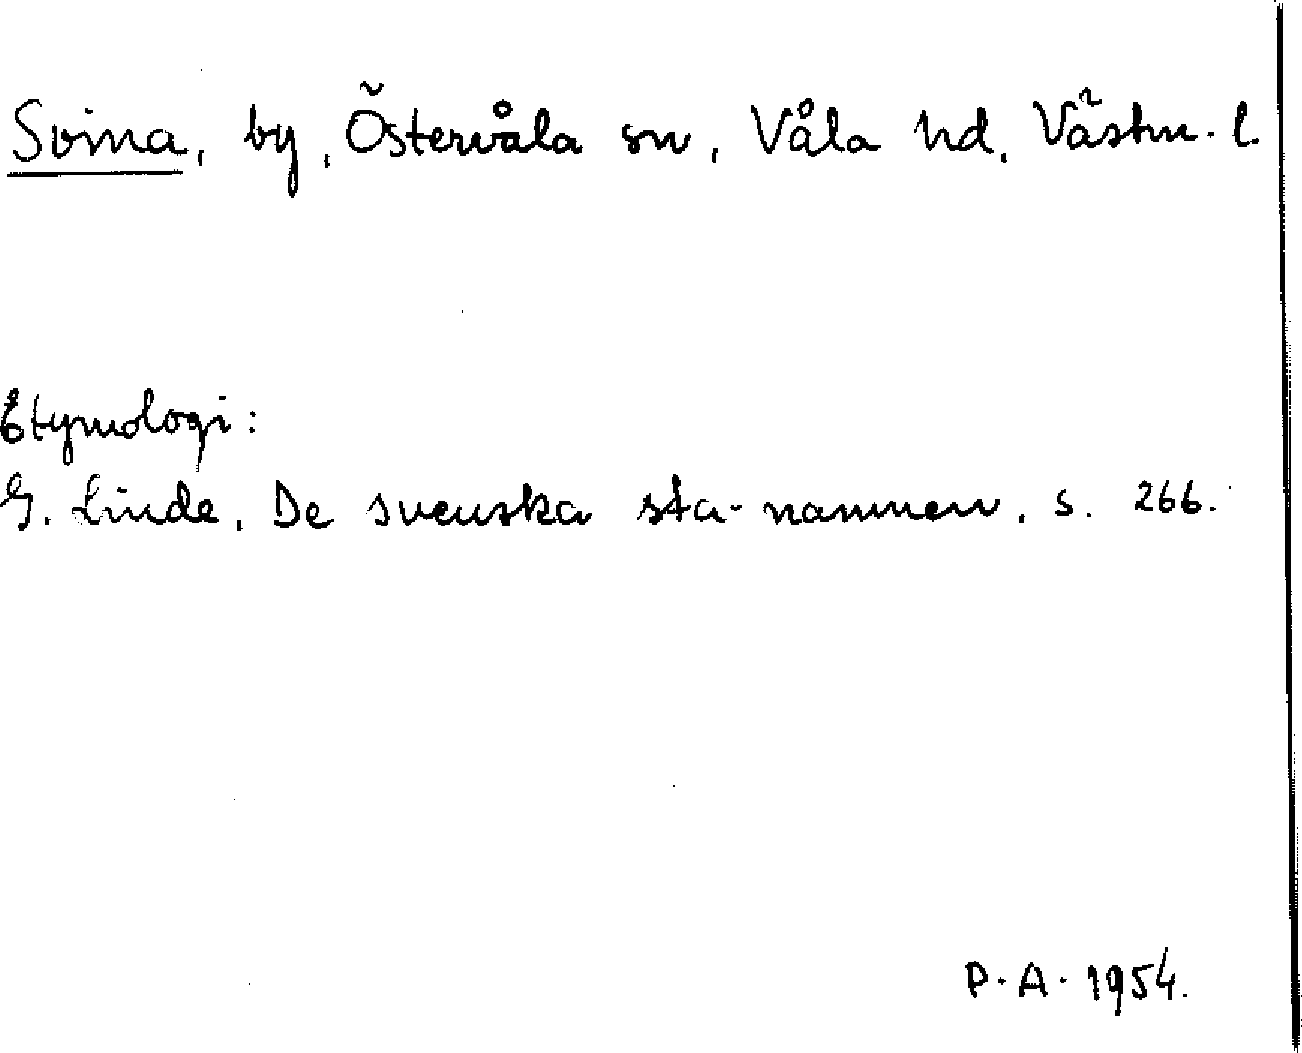 Svina, by, Östervåla sn, Våla hd, Västm. l.
Etymologi:
G. Linde, De svenska sta-namnen, s. 266.
P.A. 1954.